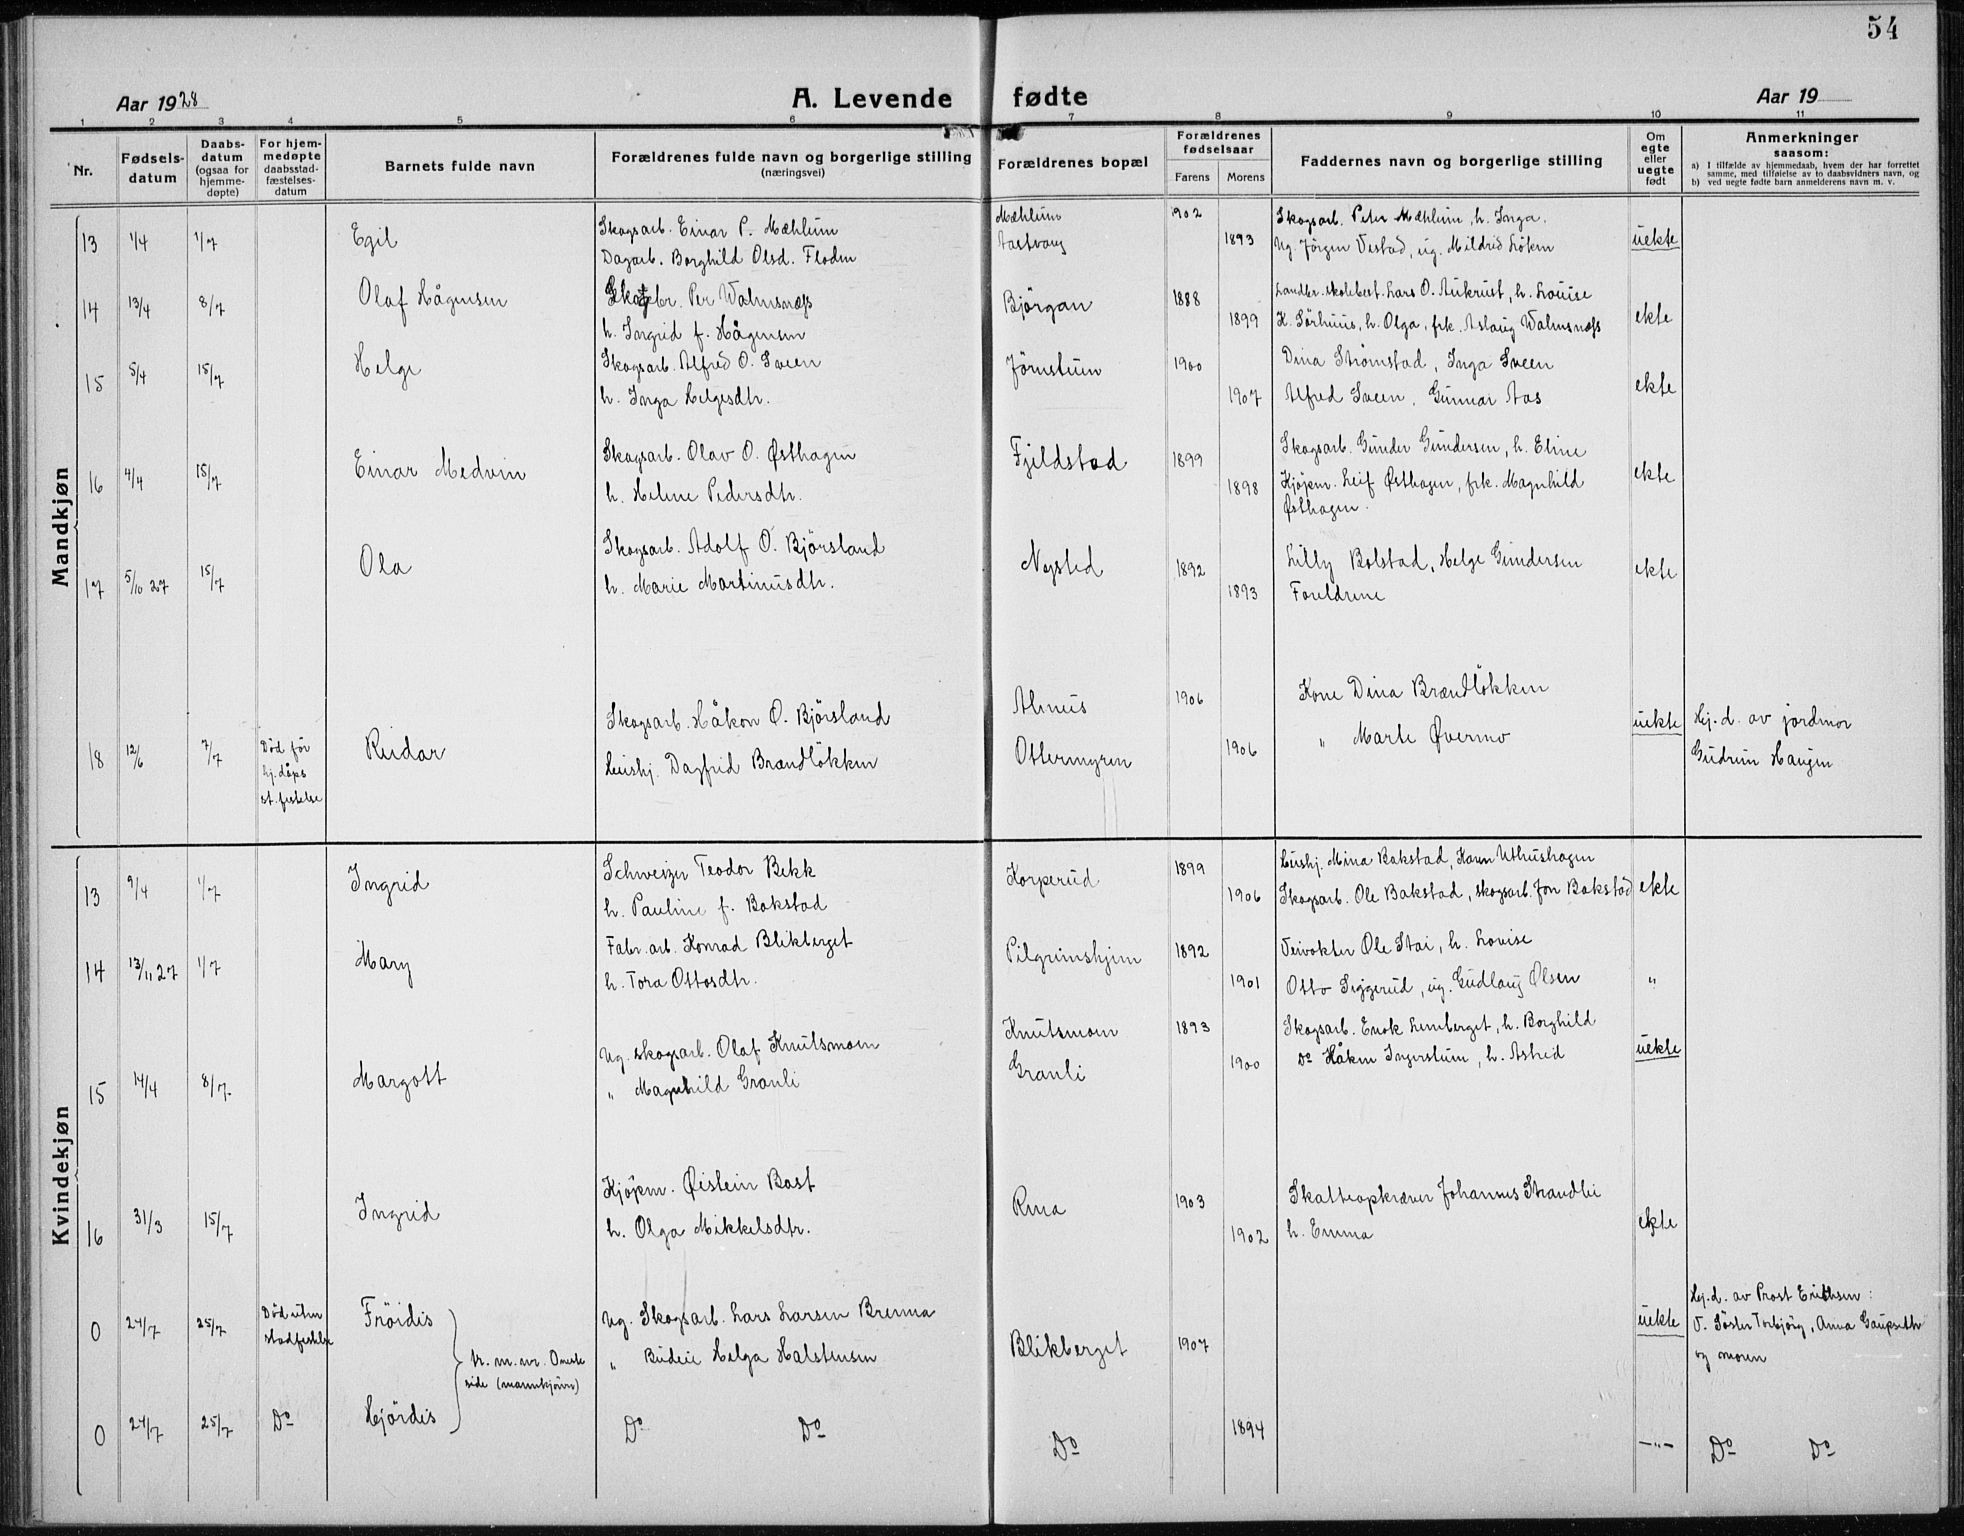 54
Aar 1928
A. Levende fødte
Aar 19
1 2 3 4 5 6 7 8 9 10 11
Nr.
Fødsels-
datum
Daabs-
datum
(ogsaa for
hjemme-
døpte)
For hjem-
medøpte
daabsstad-
fæstelses-
datum
Barnets fulde navn
Forældrenes fulde navn og borgerlige stilling
(næringsvei)
Forældrenes bopæl
Forældrenes
fødselsaar
Farens
Morens
Faddernes navn og borgerlige stilling
Om
egte
eller
uegte
født
Anmerkninger
saasom:
a) I tilfælde av hjemmedaab, hvem der har forrettet
samme, med tilføielse av to daabsvidners navn, og
b) ved uegte fødte barn anmelderens navn m. v.
Mandkjøn
13 1/4 1/7 Egil
Skogsarb. Einar P. Mæhlum
Dagarb. Borghild Olsd. Floden
Mæhlum
Aastvang
1902
1893
Skogsarb. Peter Mæhlum, h. Inga.
Ug. Jørgen Vestad, ug. Mildrid Løken
uekte
14 13/4 8/7 Olaf Hågensen
Per Walmsnæss
h. Ingrid f. Hågensen
Bjørgan
1888
1899
Landbr. skolebest. Lars O. Aukrust, h. Louise
K. Sørhuus, h. Olga, frk. Aslaug Walmsnæss
ekte
15 5/4 15/7 Helge
Skogsarb. Alfred O. Sveen
h. Inga Helgesdtr.
Jørnstuen
1900
1907
Dina Strømstad, Inga Sveen
Alfred Sveen, Gunnar Aas
ekte
16 4/4 15/7 Einar Medvin
Skogsarb. Olav O. Østhagen
h. Helene Pedersdtr.
Fjeldstad
1899
1898
Skogsarb. Gunder Gundersen, h. Eline
Kjøpm. Leif Østhagen, frk. Magnhild
Østhagen.
ekte
17 5/10 27 15/7 Ola
Skogsarb. Adolf O. Bjørsland
h. Marie Martinusdtr.
Nysted
1892
1893
Lilly Bolstad, Helge Gundersen
Foreldrene
ekte
18 12/6 7/7
Død før
hj.dåps
st.festelse
Reidar
Skogsarb. Håkon O. Bjørsland
Leushj. Dagfrid Brændløkken
Almus
Ottermyren
1906
1906
Kone Dina Brændløkken
" Marte Øvermo
uekte
Hj. d. av jordmor
Gudrun Haugen
Kvindekjøn
13 9/4 1/7 Ingrid
Schweizer Teodor Bekk
h. Pauline f. Bakstad
Korperud
1899
1906
Leushj. Mina Bakstad, Karen Uthushagen
Skogsarb. Ole Bakstad, skogsarb. Jon Bakstad
ekte
14 13/11 27 1/7 Mary
Fabr. arb. Konrad Blikberget
h. Tora Ottosdtr.
Pilgrimshjem
1892
1901
Veivokter Ole Stai, h. Lovise
Otto Siggerud, ug. Gudlaug Olsen
"
15 14/4 8/7. Margott
Ug. skogsarb. Olaf Knutsmoen
" Magnhild Granli
Knutsmoen
Granli
1893
1900
Skogsarb. Enok Lemberget, h. Borghild
Do Håken Ingerstuen, h. Astrid
uekte
16 31/3 15/7 Ingrid
Kjøpm. Øistein Bast
h. Olga Mikkelsdtr.
Rena
1903
1902
Skatteopkræver Johannes Strandlie
h. Emma
ekte
0 24/7 25/7
Død uten
stadfestelse
Frøidis
Ug. Skogsarb. Lars Larsen Brenna
" Budeie Helga Halstensen
Blikberget
1907
uekte
Hj. d. av Prost Erichsen:
V. Søster Torbjørg, Anna Gaupseth
og moren
Tr. m. nr. 0 neste
side (mannkjønn)
0 24/7 25/7 Do Hjørdis
Do Do
Do
1894
—"—
Do Do